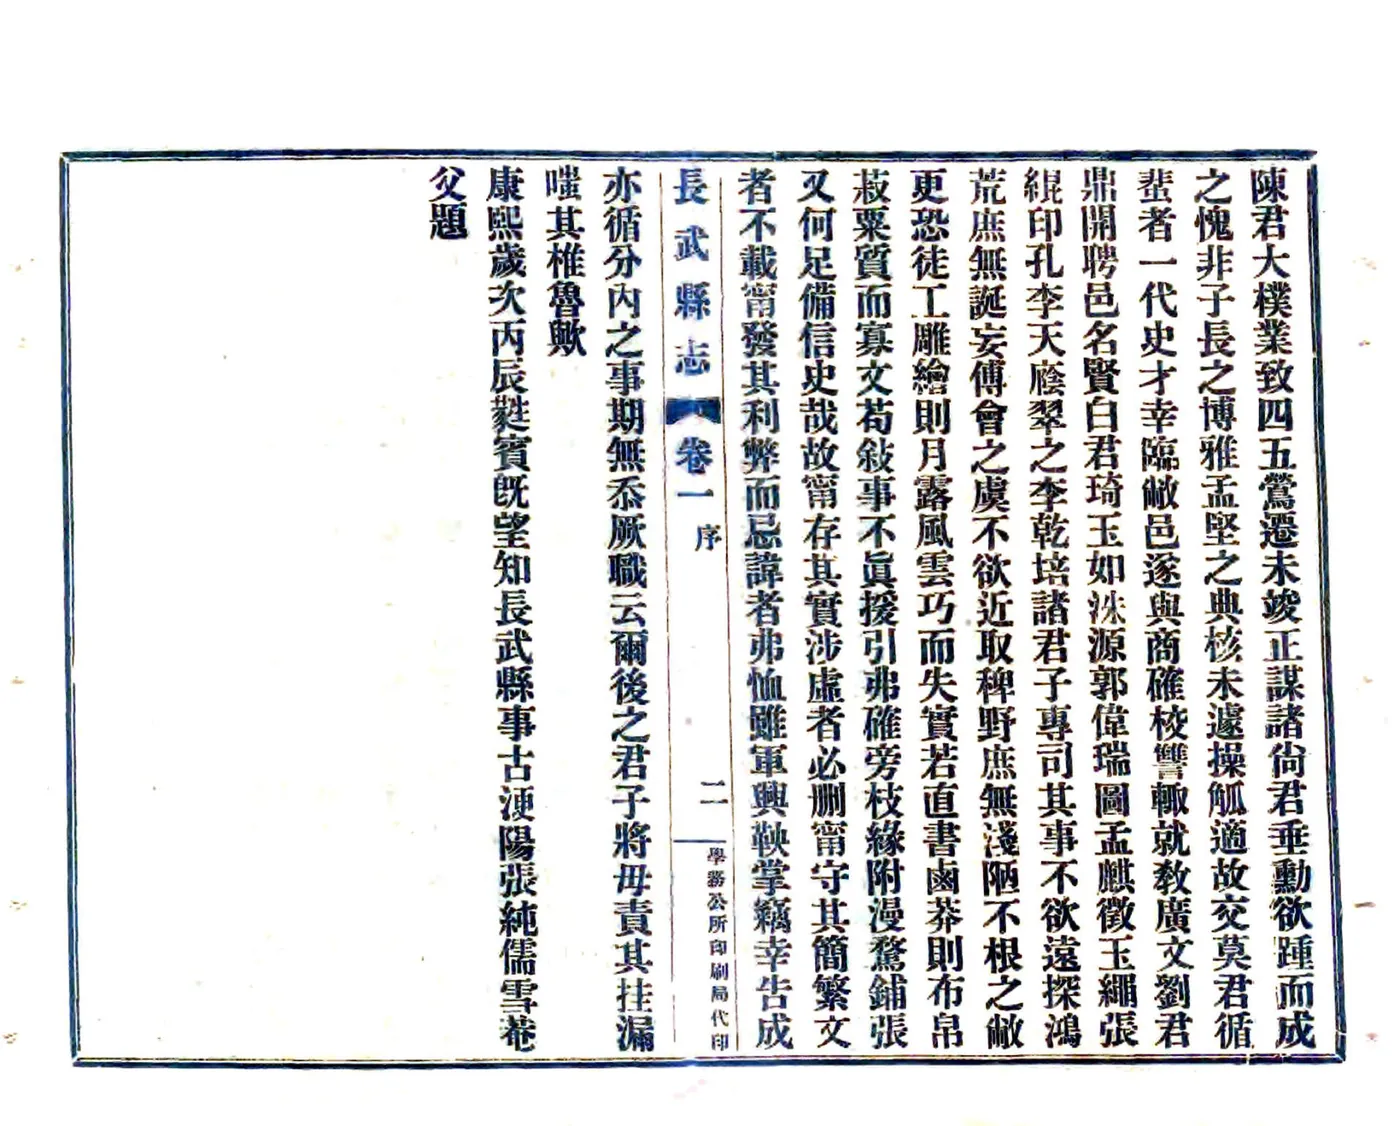 陳君大樸業致四五鶯遷未竣正謀諸尙君垂勳欲踵而成
之愧非子長之博雅孟堅之典核未遽操觚適故交莫君循
蜚者一代史才幸臨敝邑遂與商確校讐輙就敎廣文劉君
鼎開聘邑名賢白君琦玉如洙源郭偉瑞圖孟麒徵玉繩張
緄印孔李天廕翠之李乾培諸君子專司其事不欲遠探鴻
荒庶無誕妄傅會之虞不欲近取稗野庶無淺陋不根之敝
更恐徒工雕繪則月露風雲巧而失實若直書鹵莽則布帛
菽粟質而寡文苟敍事不眞援引弗確旁枝緣附漫騖鋪張
又何足備信史哉故甯存其實涉虛者必删甯守其簡繁文
者不載甯發其利弊而忌諱者弗恤雖軍興鞅掌竊幸告成
長武縣志 卷一 序 二 學務公所印刷局代印
亦循分內之事期無忝厥職云爾後之君子將毋責其挂漏
嗤其椎魯歟
康熙歲次丙辰蕤賓旣望知長武縣事古浭陽張純儒雪菴
父題